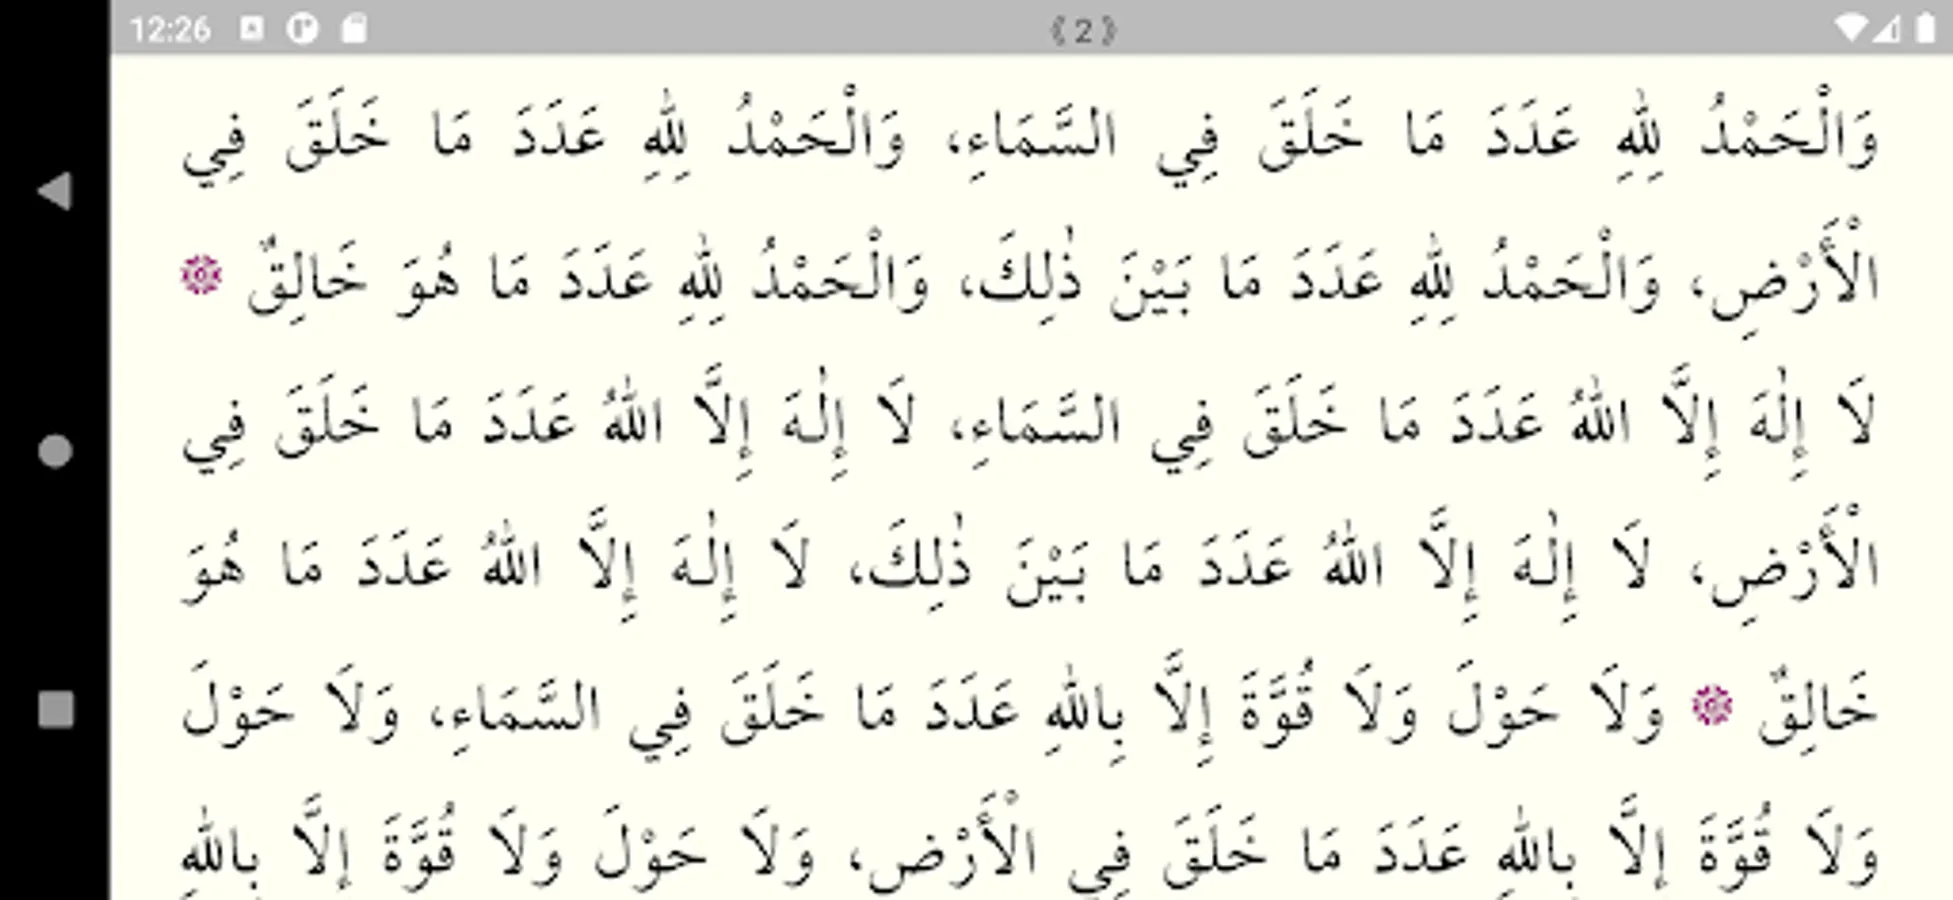 12:26 《2》
وَالْحَمْدُ لِلّٰهِ عَدَدَ مَا خَلَقَ فِي السَّمَاءِ، وَالْحَمْدُ لِلّٰهِ عَدَدَ مَا خَلَقَ فِي
الْأَرْضِ، وَالْحَمْدُ لِلّٰهِ عَدَدَ مَا بَيْنَ ذٰلِكَ، وَالْحَمْدُ لِلّٰهِ عَدَدَ مَا هُوَ خَالِقٌ ۞
لَا إِلٰهَ إِلَّا اللّٰهُ عَدَدَ مَا خَلَقَ فِي السَّمَاءِ، لَا إِلٰهَ إِلَّا اللّٰهُ عَدَدَ مَا خَلَقَ فِي
الْأَرْضِ، لَا إِلٰهَ إِلَّا اللّٰهُ عَدَدَ مَا بَيْنَ ذٰلِكَ، لَا إِلٰهَ إِلَّا اللّٰهُ عَدَدَ مَا هُوَ
خَالِقٌ ۞ وَلَا حَوْلَ وَلَا قُوَّةَ إِلَّا بِاللّٰهِ عَدَدَ مَا خَلَقَ فِي السَّمَاءِ، وَلَا حَوْلَ
وَلَا قُوَّةَ إِلَّا بِاللّٰهِ عَدَدَ مَا خَلَقَ فِي الْأَرْضِ، وَلَا حَوْلَ وَلَا قُوَّةَ إِلَّا بِاللّٰهِ